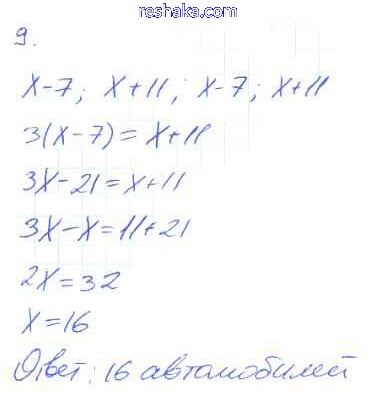 reshaka.com
9.
x-7; x+11; x-7; x+11
3(x-7)=x+11
3x-21=x+11
3x-x=11+21
2x=32
x=16
Ответ: 16 автомобилей